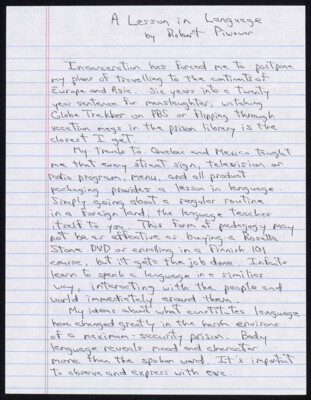 A Lesson in Language
by Robert Piwowar
Incarceration has forced me to postpone
my plans of travelling to the continents of
Europe and Asia. Six years into a twenty
year sentence for manslaughter, watching
Globe Trekker on PBS or flipping through
vacation mags in the prison library is the
closest I get.
My travels to Quebec and Mexico taught
me that every street sign, television or
radio program, menu, and all product
packaging provides a lesson in language.
Simply going about a regular routine
in a foreign land, the language teaches
itself to you. This form of pedagogy may
not be as effective as buying a Rosetta
Stone DVD or enrolling in a Finnish 101
course, but it gets the job done. Infants
learn to speak a language in a similar
way, interacting with the people and
world immediately around them.
My ideas about what constitutes language
have changed greatly in the harsh environs
of a maximum-security prison. Body
language reveals mood and character
more than the spoken word. It's important
to observe and express with care.